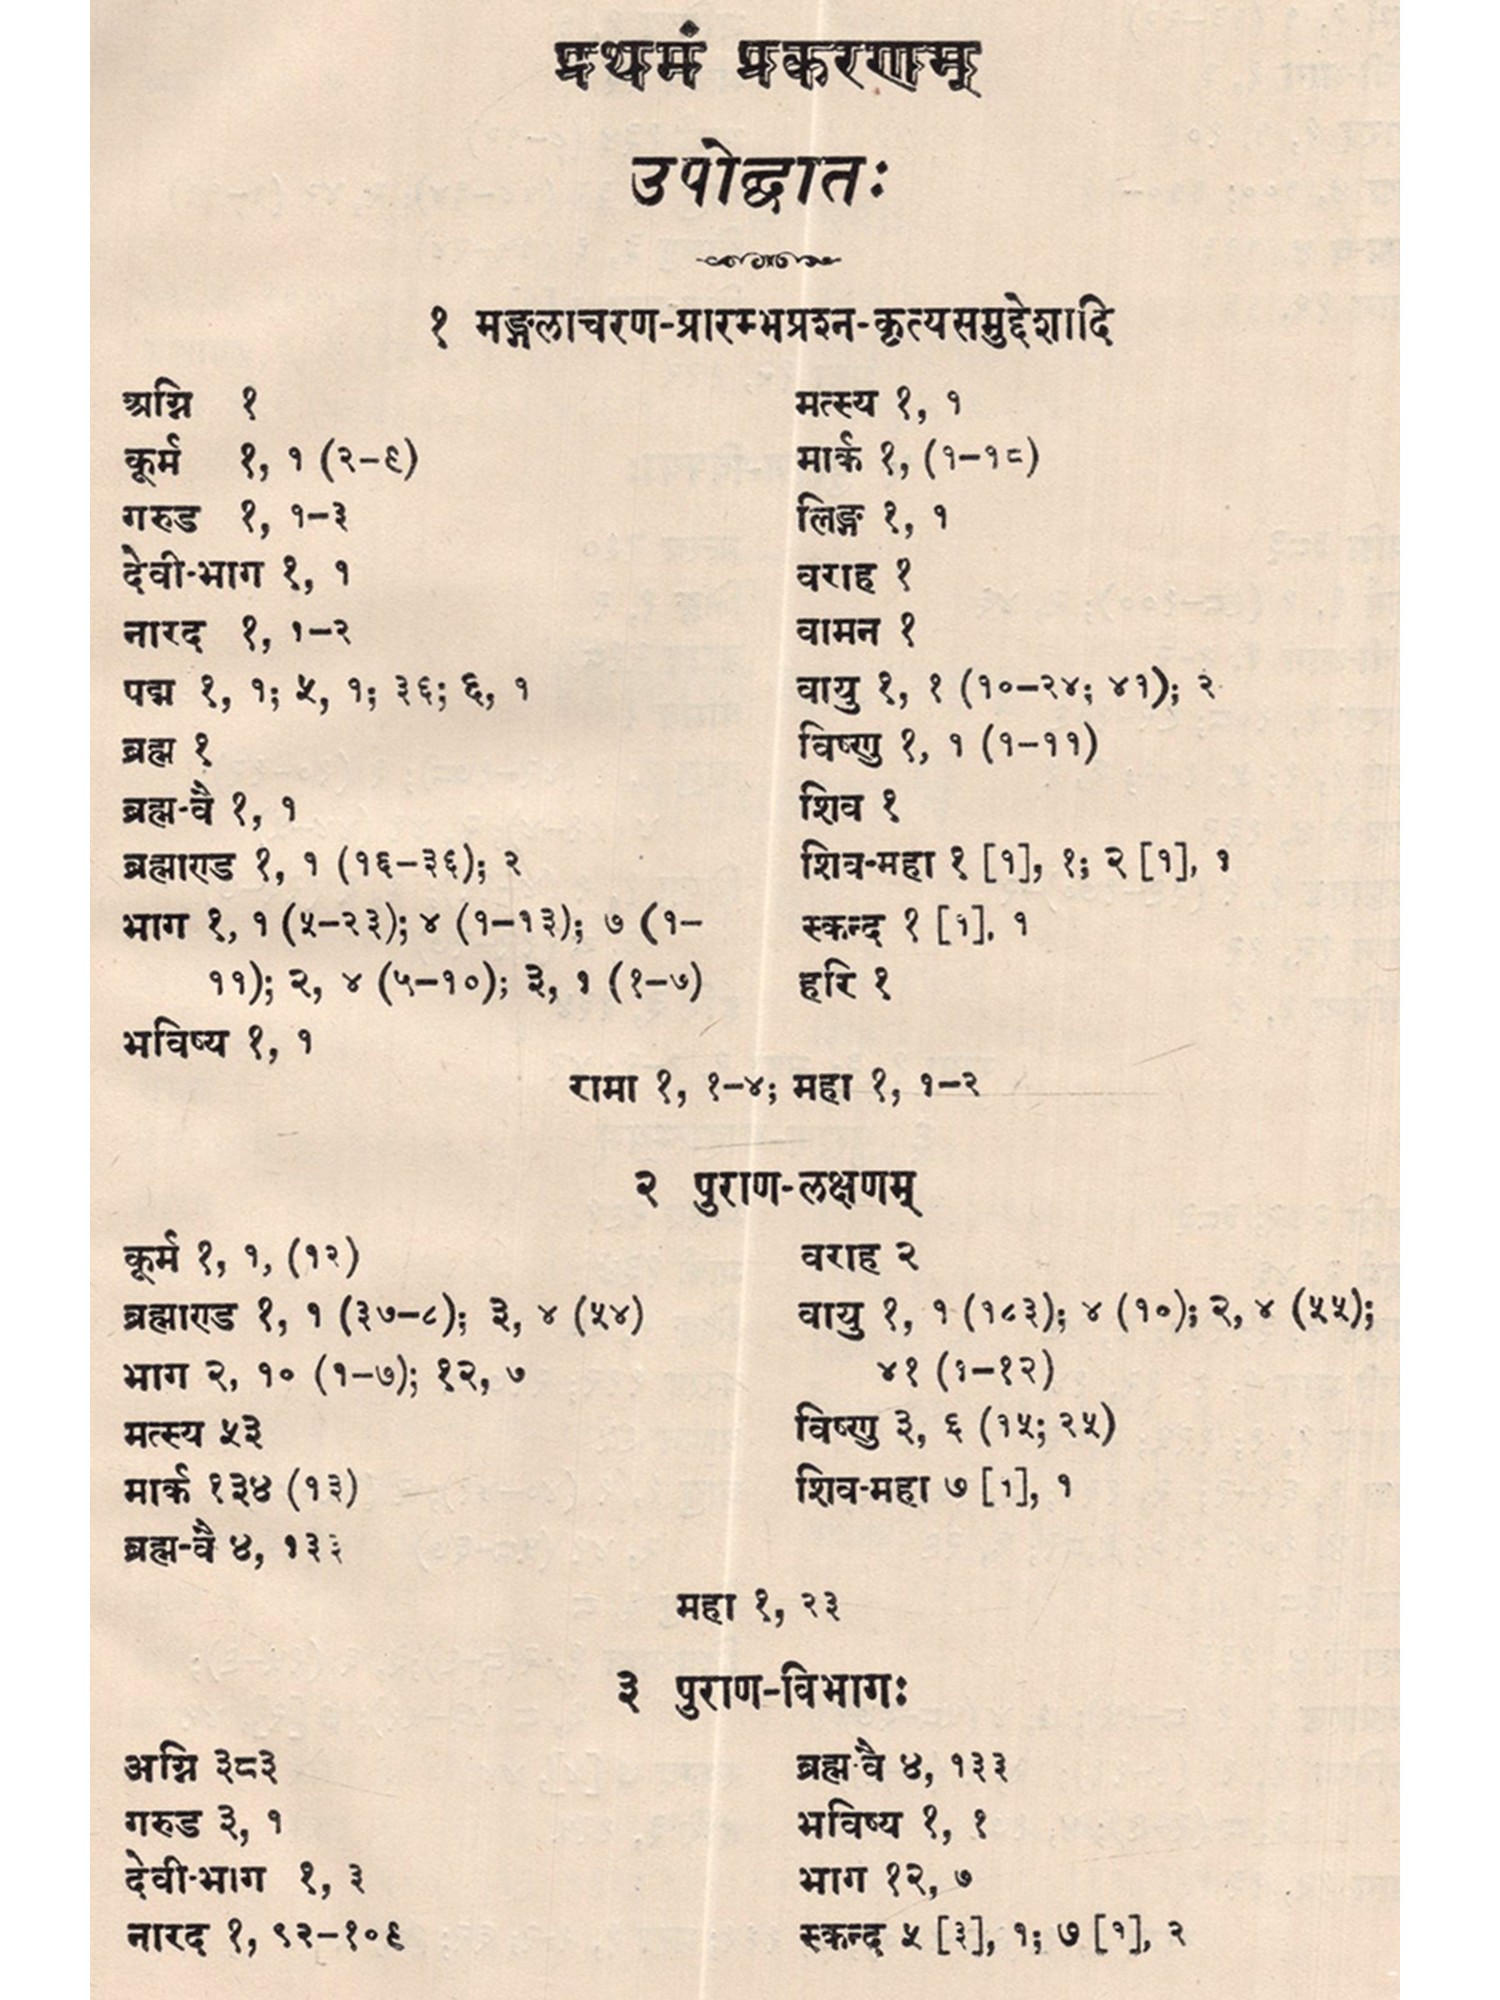 प्रथमं प्रकरणम्
उपोद्घातः
१ मङ्गलाचरण-प्रारम्भप्रश्न-कृत्यसमुद्देशादि
अग्नि १
कूर्म १, १ (२-९)
गरुड १, १-३
देवी-भाग १, १
नारद १, १-२
पद्म १, १; ५, १; ३६; ६, १
ब्रह्म १
ब्रह्म-वै १, १
ब्रह्माण्ड १, १ (१६-३६); २
भाग १, १ (५-२३); ४ (१-१३); ७ (१-
११); २, ४ (५-१०); ३, १ (१-७)
भविष्य १, १
मत्स्य १, १
मार्क १, (१-१८)
लिङ्ग १, १
वराह १
वामन १
वायु १, १ (१०-२४; ४१); २
विष्णु १, १ (१-११)
शिव १
शिव-महा १ [१], १; २ [१], १
स्कन्द १ [१], १
हरि १
रामा १, १-४; महा १, १-२
२ पुराण-लक्षणम्
कूर्म १, १, (१२)
ब्रह्माण्ड १, १ (३७-८); ३, ४ (५४)
भाग २, १० (१-७); १२, ७
मत्स्य ५३
मार्क १३४ (१३)
ब्रह्म-वै ४, १३३
वराह २
वायु १, १ (१८३); ४ (१०); २, ४ (५५);
४१ (१-१२)
विष्णु ३, ६ (१५; २५)
शिव-महा ७ [१], १
महा १, २३
३ पुराण-विभागः
अग्नि ३८३
गरुड ३, १
देवी-भाग १, ३
नारद १, ९२-१०९
ब्रह्म-वै ४, १३३
भविष्य १, १
भाग १२, ७
स्कन्द ५ [३], १; ७ [१], २